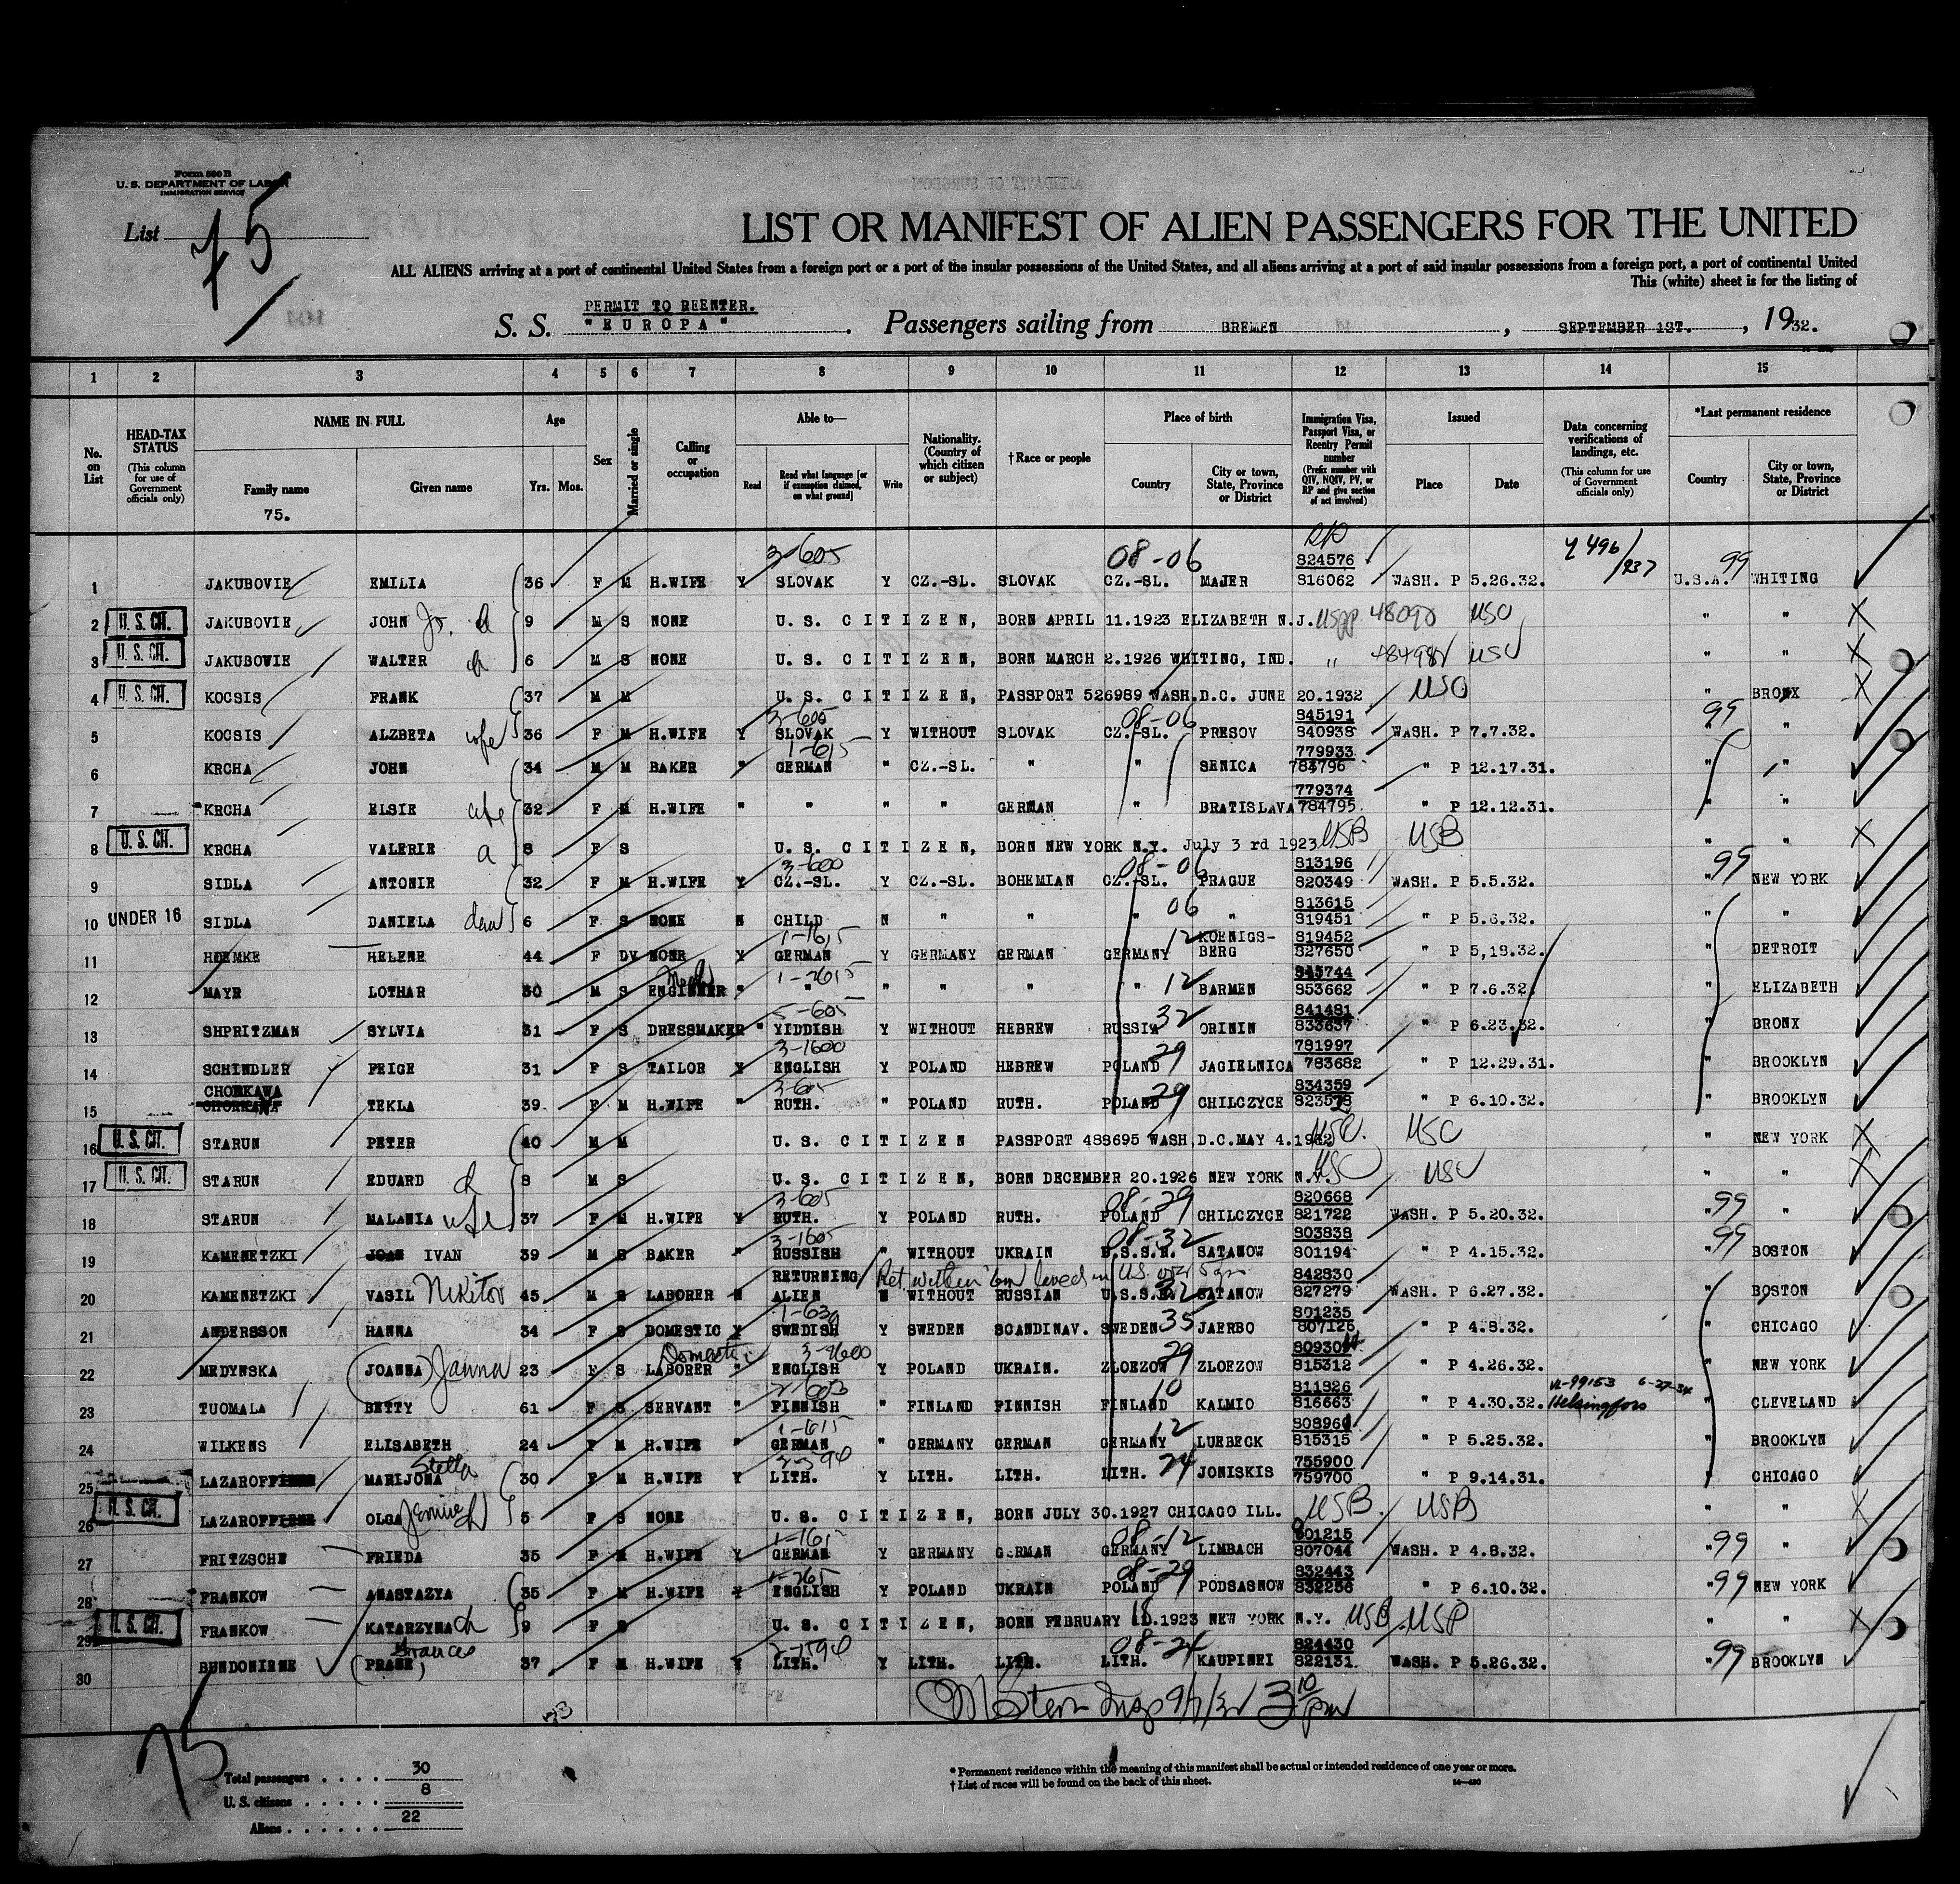 Form 500 B
U. S. DEPARTMENT OF LABOR
IMMIGRATION SERVICE
List 75
LIST OR MANIFEST OF ALIEN PASSENGERS FOR THE UNITED
ALL ALIENS arriving at a port of continental United States from a foreign port or a port of the insular possessions of the United States, and all aliens arriving at a port of said insular possessions from a foreign port, a port of continental United
This (white) sheet is for the listing of
PERMIT TO REENTER.
S. S. "EUROPA". Passengers sailing from BREMEN, SEPTEMBER 1ST., 1932.
1 2 3 4 5 6 7 8 9 10 11 12 13 14 15
No. on List
HEAD-TAX STATUS (This column for use of Government officials only)
NAME IN FULL Family name Given name
75.
Age Yrs. Mos.
Sex
Married or single
Calling or occupation
Able to— Read Read what language [or if exemption claimed, on what ground] Write
Nationality. (Country of which citizen or subject)
†Race or people
Place of birth Country City or town, State, Province or District
Immigration Visa, Passport Visa, or Reentry Permit number (Prefix number with QIV, NQIV, PV, or RP and give section of act involved)
Issued Place Date
Data concerning verifications of landings, etc. (This column for use of Government officials only)
*Last permanent residence Country City or town, State, Province or District
3-605 08-06 RP 824576 99
1 JAKUBOVIE EMILIA 36 F M H.WIFE Y SLOVAK Y CZ.-SL. SLOVAK CZ.-SL. MAJER 816062 WASH. P 5.26.32. U.S.A. WHITING
2 U. S. CIT. JAKUBOVIE JOHN Jr. 9 M S NONE U. S. CITIZEN, BORN APRIL 11.1923 ELIZABETH N.J. 48090 USC " "
3 U. S. CIT. JAKUBOVIE WALTER ch 6 M S NONE U. S. CITIZEN, BORN MARCH 2.1926 WHITING, IND. " USC " "
4 U. S. CIT. KOCSIS FRANK 37 M M U. S. CITIZEN, PASSPORT 526989 WASH.D.C. JUNE 20.1932 USC " BRONX
3-605 08-06 845191 99
5 KOCSIS ALZBETA wife 36 F M H.WIFE Y SLOVAK Y WITHOUT SLOVAK CZ.-SL. PRESOV 840938 WASH. P 7.7.32. " "
1-615 779933
6 KRCHA JOHN 34 M M BAKER " GERMAN " CZ.-SL. " " SENICA 784796 " P 12.17.31. " "
779374
7 KRCHA ELSIE wife 32 F M H.WIFE " " " " GERMAN " BRATISLAVA 784795 " P 12.12.31. " "
8 U. S. CIT. KRCHA VALERIE 8 F S U. S. CITIZEN, BORN NEW YORK N.Y. July 3 rd 1923 USB USB " "
3-600 08-06 813196 99
9 SIDLA ANTONIE 32 F M H.WIFE Y CZ.-SL. Y CZ.-SL. BOHEMIAN CZ.-SL. PRAGUE 820349 WASH. P 5.5.32. " NEW YORK
06 813615
10 UNDER 16 SIDLA DANIELA dau 6 F S NONE N CHILD N " " " " 819451 " P 5.6.32. " "
1-615 12 KOENIGS- 819452
11 HOEMKE HELENE 44 F DV NONE Y GERMAN Y GERMANY GERMAN GERMANY BERG 827650 " P 5,18.32. " DETROIT
12 845744
12 MAYR LOTHAR 30 M S ENGINEER " " " " " " BARMEN 853662 " P 7.6.32. " ELIZABETH
5-605 32 841481
13 SHPRITZMAN SYLVIA 31 F S DRESSMAKER " YIDDISH Y WITHOUT HEBREW RUSSIA ORININ 833637 " P 6.23.32. " BRONX
3-1600 29 781997
14 SCHINDLER FEIGE 31 F S TAILOR Y ENGLISH Y POLAND HEBREW POLAND JAGIELNICA 783682 " P 12.29.31. " BROOKLYN
CHORKAWA 3-605 29 834359
15 TEKLA 39 F M H.WIFE " RUTH. " POLAND RUTH. POLAND CHILCZYCE " P 6.10.32. " BROOKLYN
16 U. S. CIT. STARUN PETER 40 M M U. S. CITIZEN PASSPORT 488695 WASH,D.C.MAY 4.1932 USC. USC " NEW YORK
17 U. S. CIT. STARUN EDUARD ch 8 M S U. S. CITIZEN, BORN DECEMBER 20.1926 NEW YORK N.Y. USC USC " "
3-605 08-29 820668 99
18 STARUN MALANIA wife 37 F M H.WIFE Y RUTH. Y POLAND RUTH. POLAND CHILCZYCE 821722 WASH. P 5.20.32. " "
3-1605 08-32 803838 99
19 KAMENETZKI JOAN IVAN 39 M S BAKER " RUSSISH " WITHOUT UKRAIN U.S.S.R. SATANOW 801194 " P 4.15.32. " BOSTON
RETURNING 842830
20 KAMENETZKI VASIL Nikitor 45 M S LABORER N ALIEN N WITHOUT RUSSIAN U.S.S.R. SATANOW 827279 WASH. P 6.27.32. " BOSTON
801235
21 ANDERSSON HANNA 34 F S DOMESTIC Y SWEDISH Y SWEDEN SCANDINAV. SWEDEN 35 JAERBO 807126 " P 4.8.32. " CHICAGO
Domestic 29
22 MEDYNSKA (JOANNA) Janina 23 F S LABORER " ENGLISH " POLAND UKRAIN. ZLOEZOW ZLOEZOW 815312 " P 4.26.32. " NEW YORK
10 811826 6-27-34
23 TUOMALA BETTY 61 F S SERVANT " FINNISH " FINLAND FINNISH FINLAND KALMIO 816663 " P 4.30.32. Helsingfors " CLEVELAND
1-615 12
24 WILKENS ELISABETH 24 F M H.WIFE " GERMAN " GERMANY GERMAN GERMANY LUEBECK 815315 " P 5.25.32. " BROOKLYN
Stella 24 755900
25 LAZAROFF MARIJONA 30 F M H.WIFE Y LITH. Y LITH. LITH. LITH. JONISKIS 759700 " P 9.14.31. " CHICAGO
26 U. S. CIT. LAZAROFF OLGA 5 F S NONE U. S. CITIZEN, BORN JULY 30.1927 CHICAGO ILL. USB. USB " "
08-12 801215 99
27 FRITZSCHE FRIEDA 35 F M H.WIFE Y GERMAN Y GERMANY GERMAN GERMANY LIMBACH 807044 WASH. P 4.8.32. " "
08-29 832443 99
28 FRANKOW ANASTAZYA 35 F M H.WIFE Y ENGLISH Y POLAND UKRAIN POLAND PODSASNOW 832256 " P 6.10.32. " NEW YORK
29 U. S. CIT. FRANKOW KATARZYNA ch 9 F S U. S. CITIZEN, BORN FEBRUARY 18.1923 NEW YORK N.Y. USB USB " "
Frances 08-24 824430 99
30 BUNDONIENE (PRANE) 37 F M H.WIFE Y LITH. Y LITH. LITH. LITH. KAUPINEI 822131 WASH. P 5.26.32. " BROOKLYN
Stern Insp 3 10 pm
75
Total passengers . . . . 30
U. S. citizens . . . . . 8
Aliens . . . . . . 22
* Permanent residence within the meaning of this manifest shall be actual or intended residence of one year or more.
† List of races will be found on the back of this sheet.